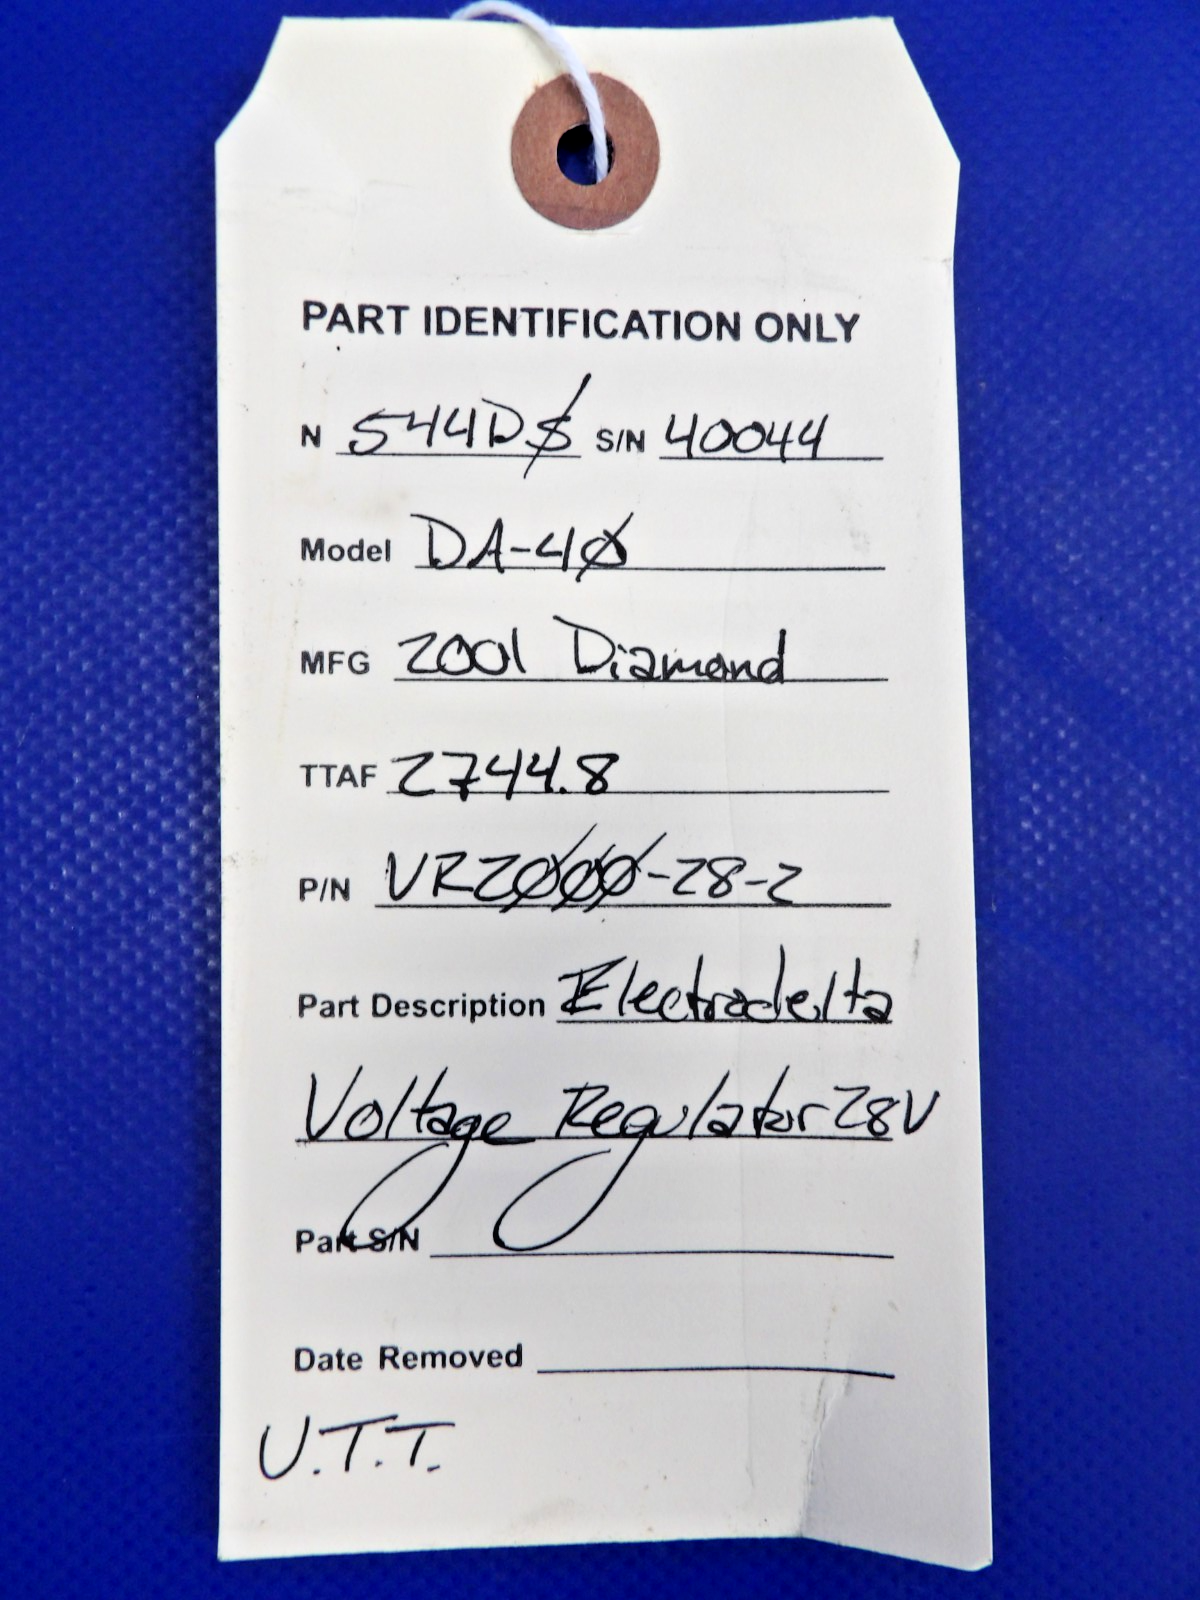 PART IDENTIFICATION ONLY
N 544D$ S/N 40044
Model DA-4Ø
MFG 2001 Diamond
TTAF 2744.8
P/N VR2ØØØ-28-2
Part Description Electradelta
Voltage Regulator 28V
Part S/N
Date Removed
U.T.T.